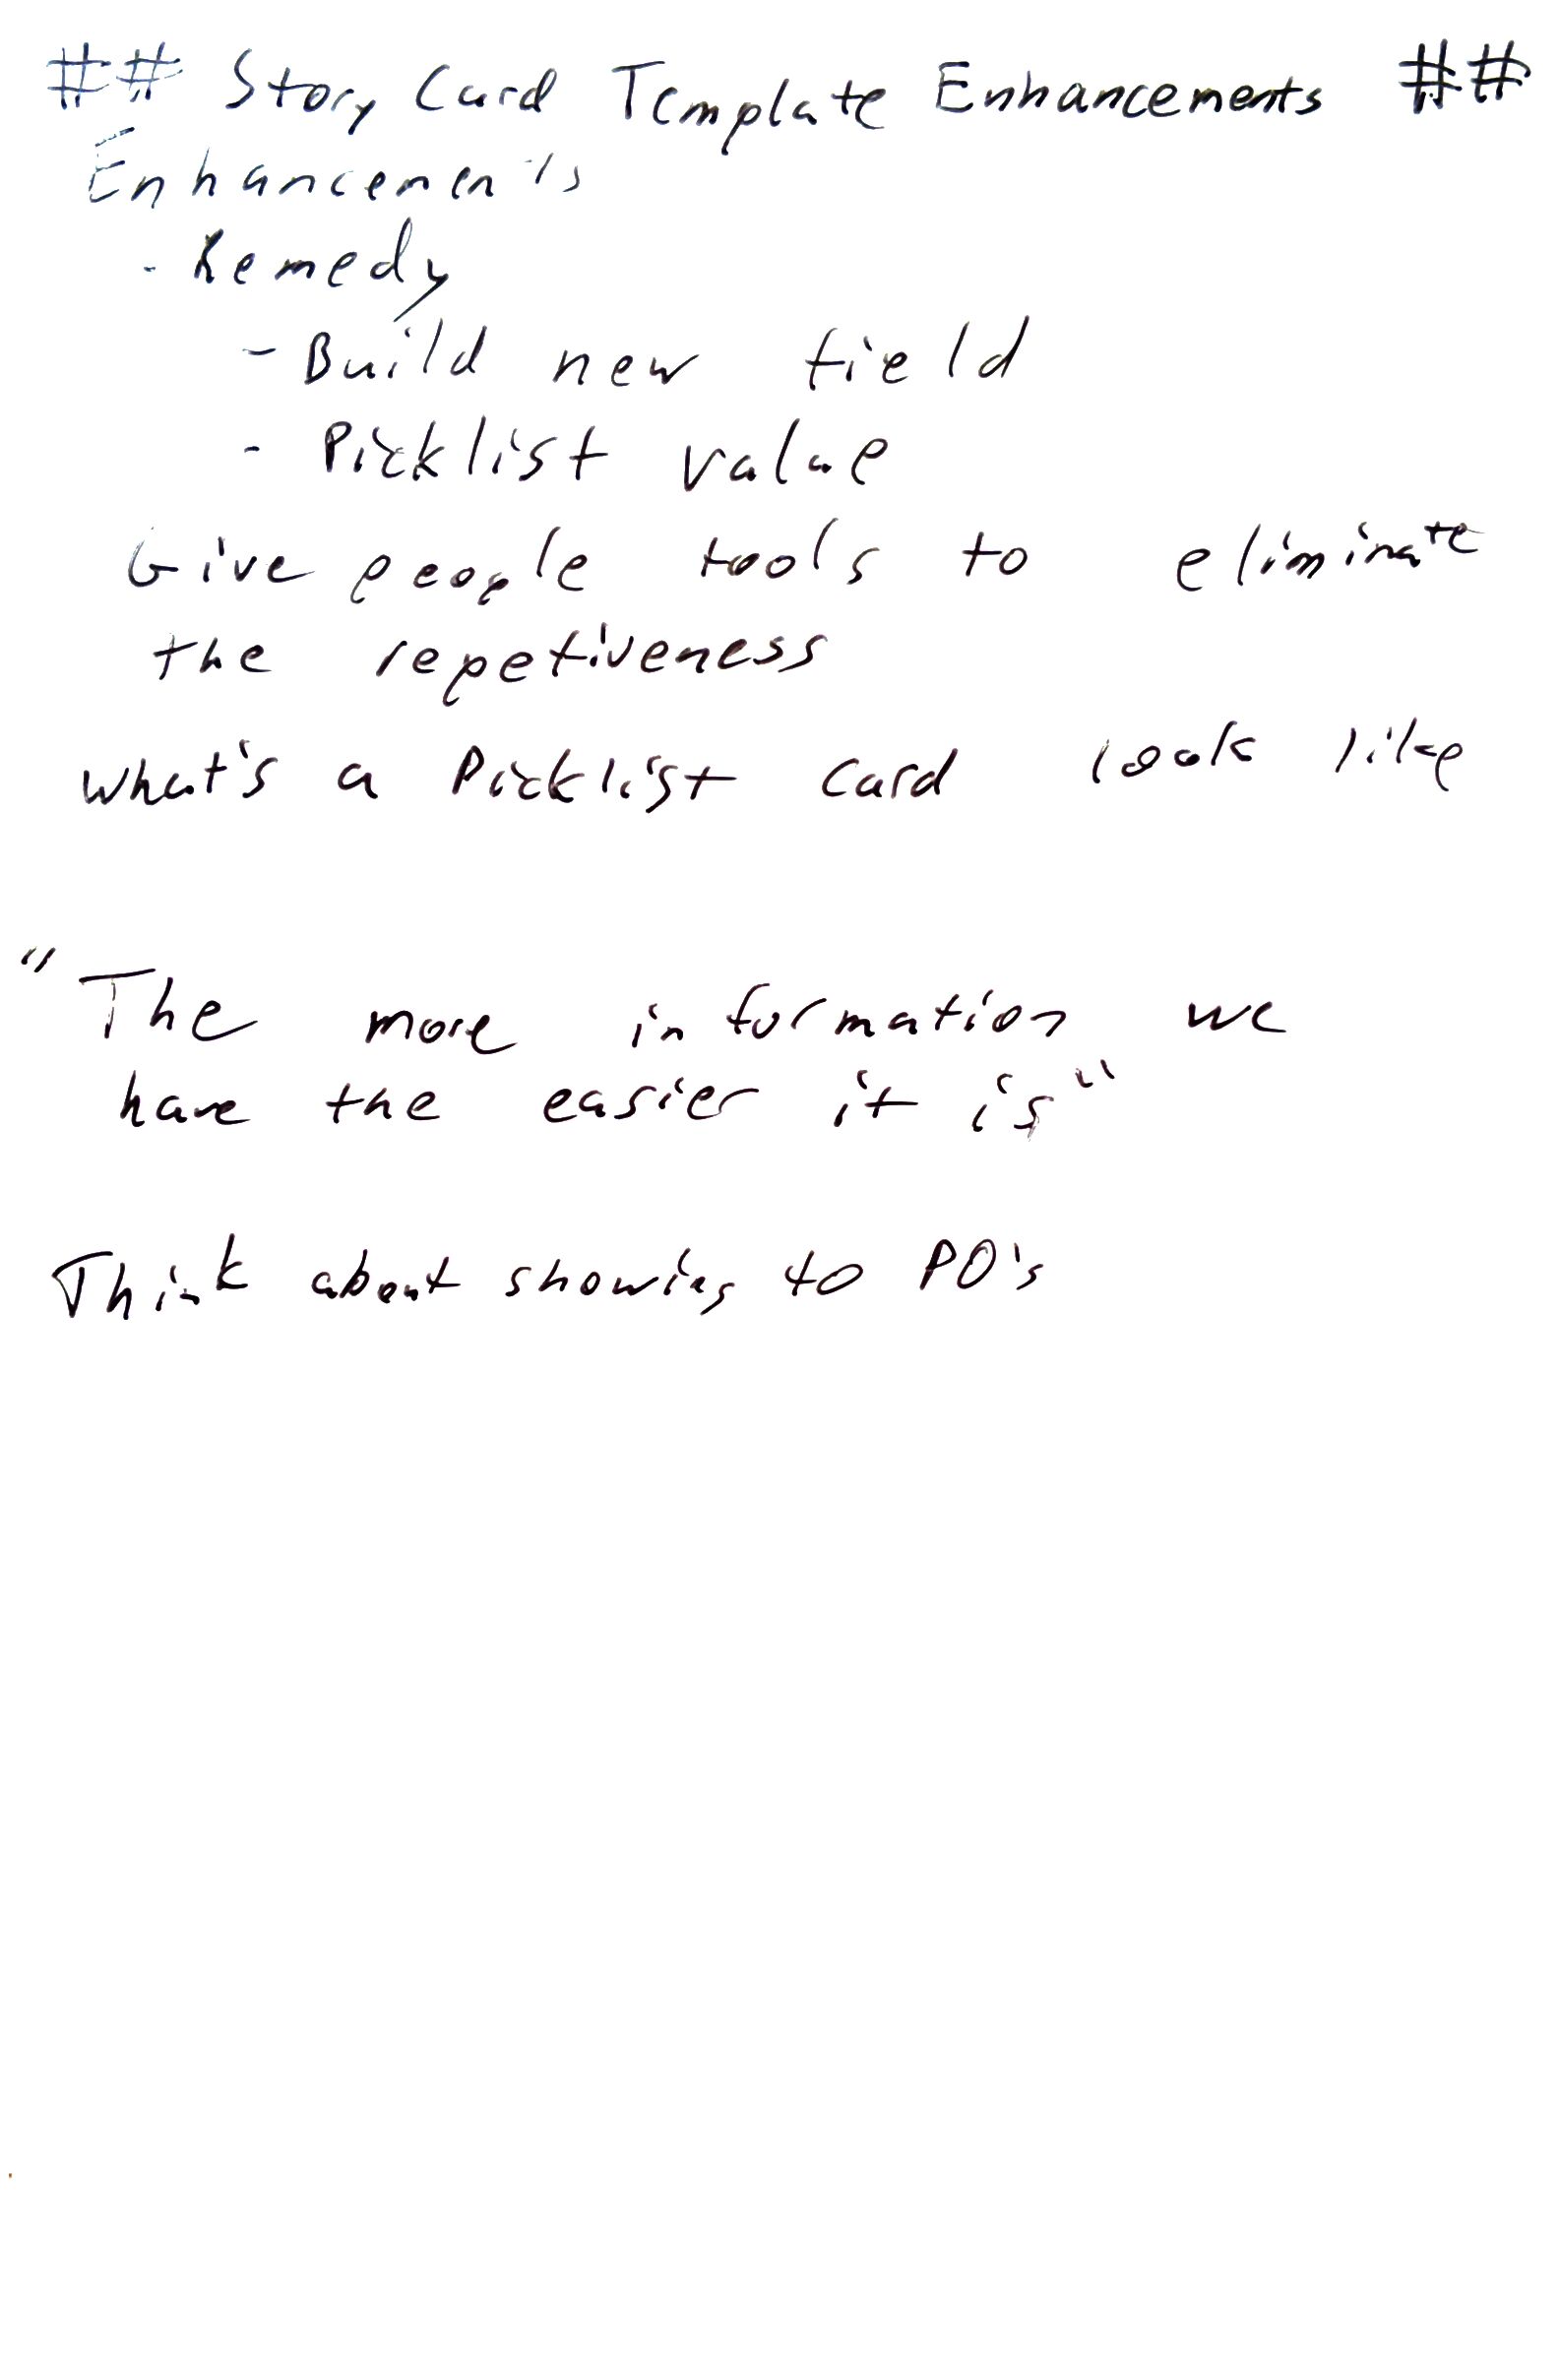 ## Story Card Template Enhancements ##
Enhancements
- Remedy
- Build new field
- Picklist value
Give people tools to eliminate
the repetiveness
what's a Picklist card look like
"The more information we
have the easier it is"
Think about showing to PO's